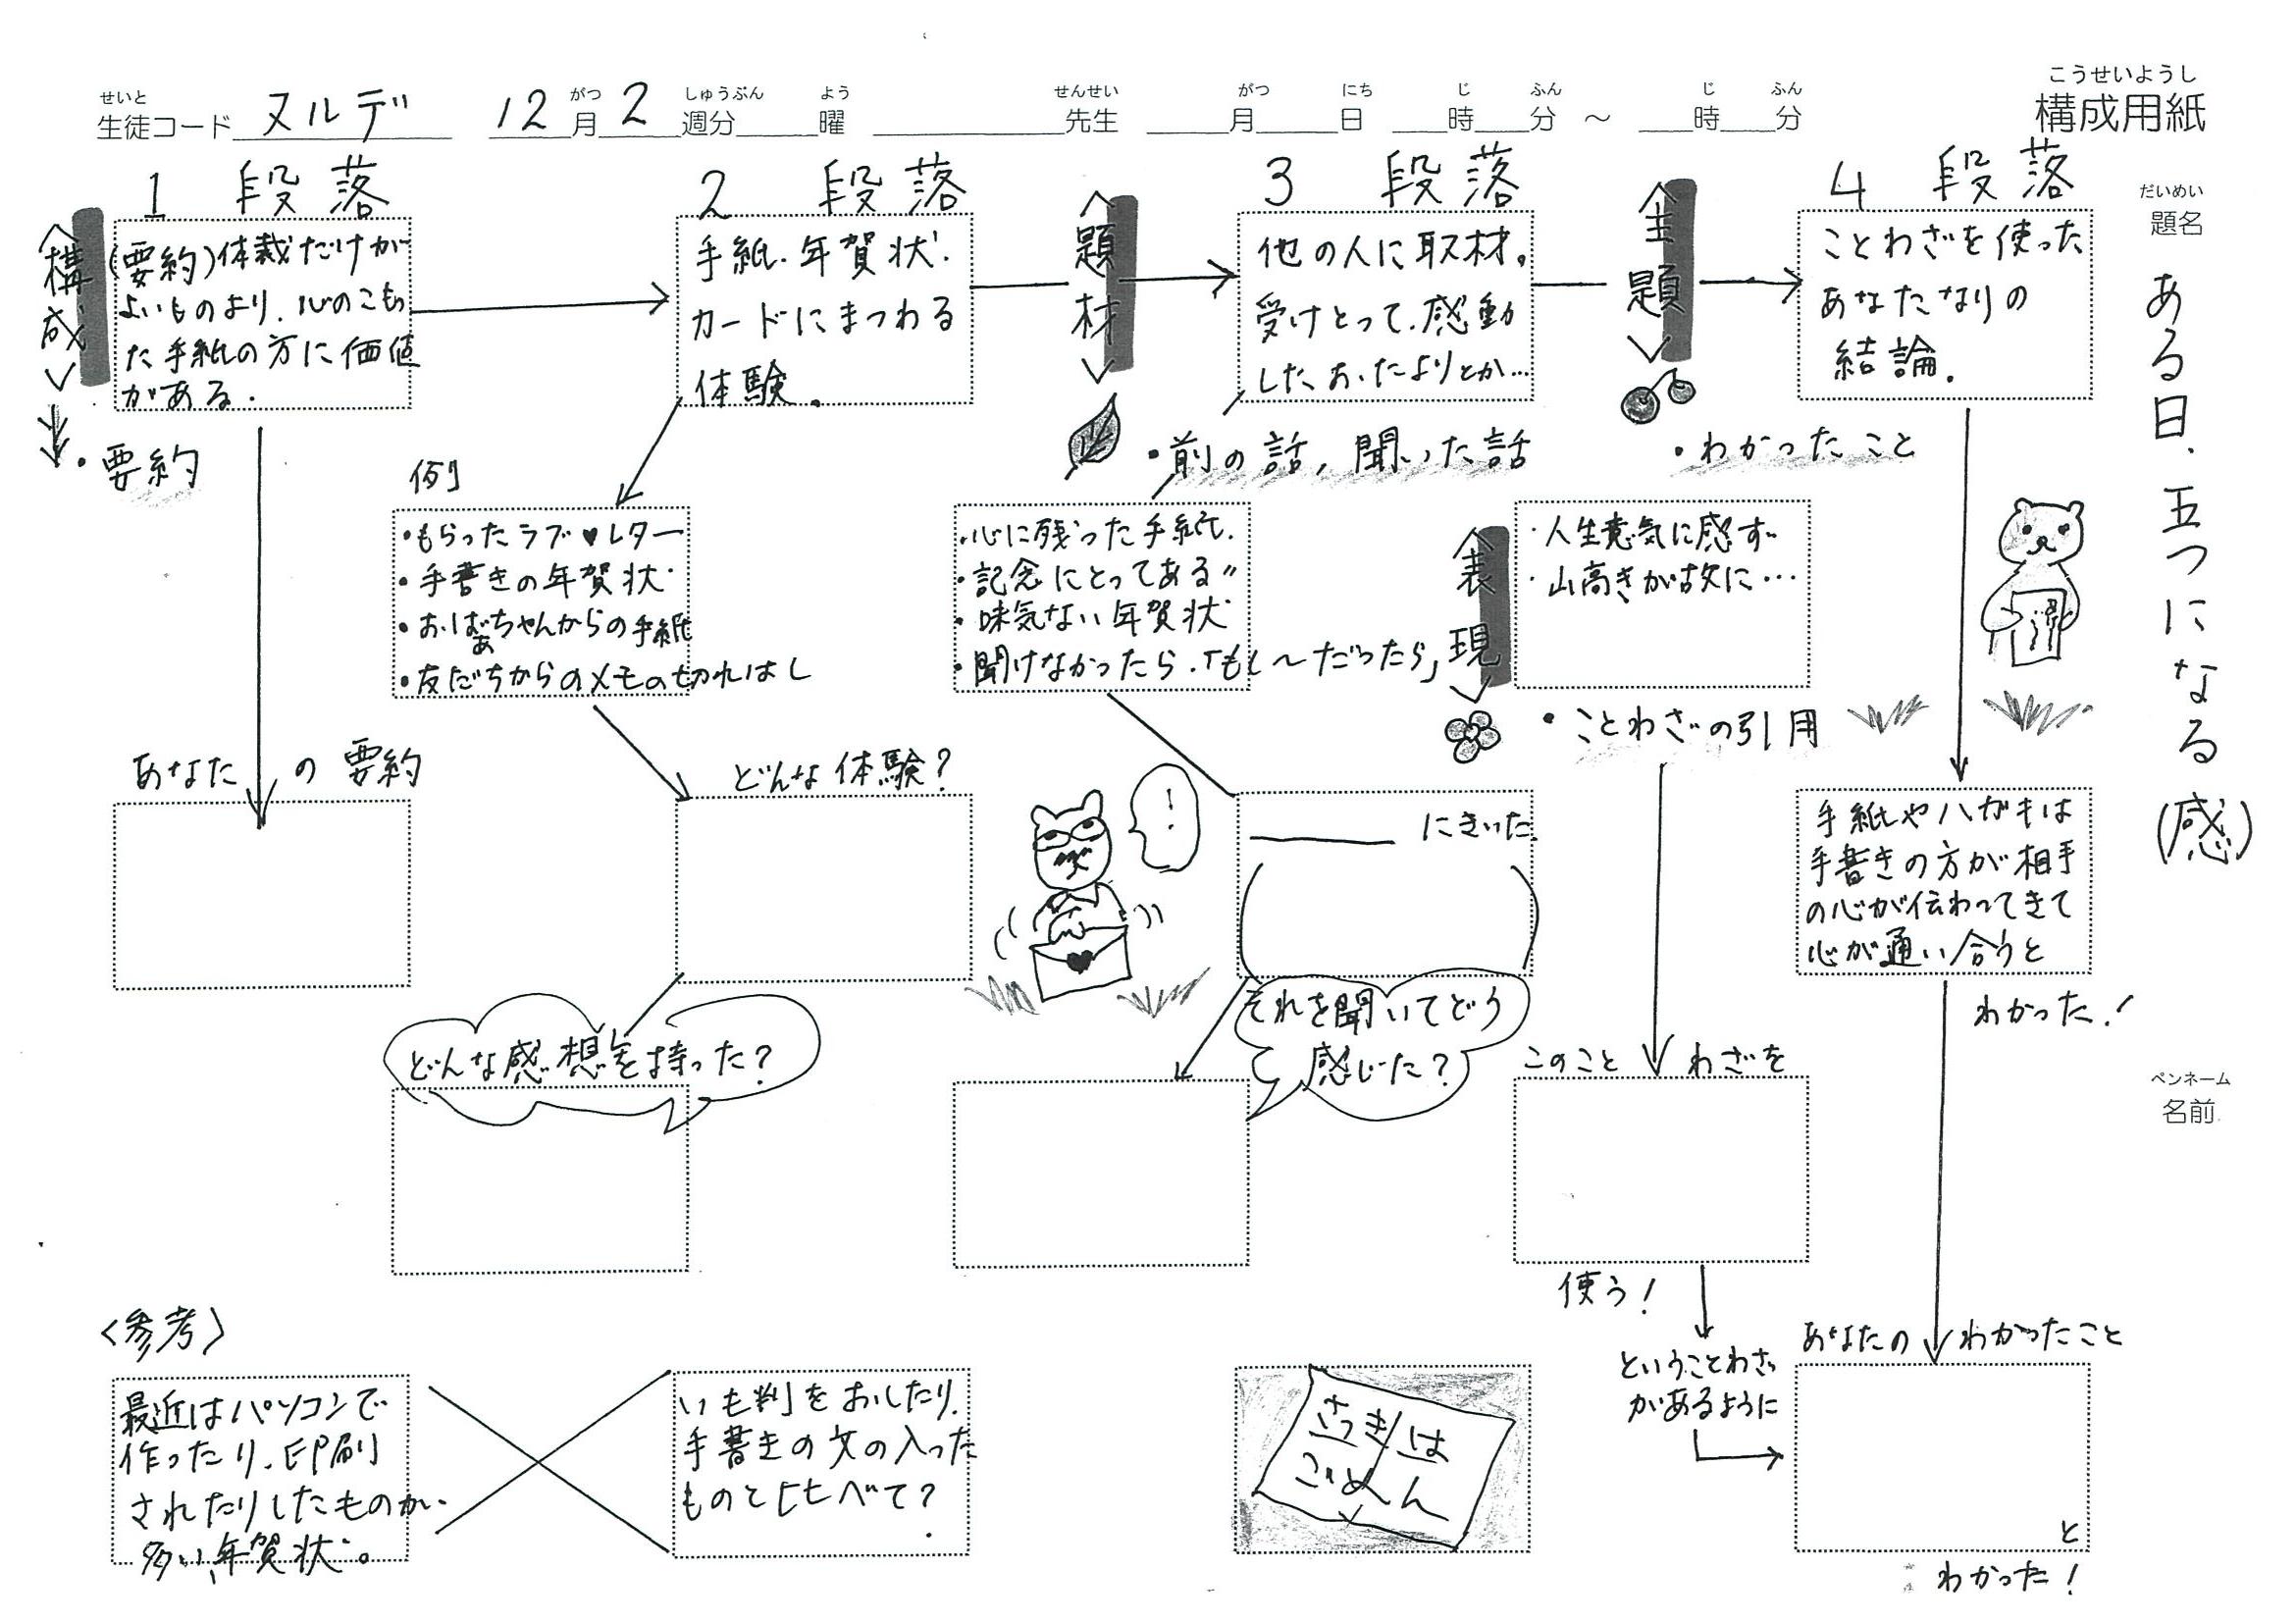 こうせいようし
構成用紙
せいと
生徒コード ヌルデ 12月 2週分 曜 先生 月 日 時 分 ～ 時 分
がつ しゅうぶん よう せんせい がつ にち じ ふん じ ふん
だいめい
題名
ある日、五つになる(感)
ペンネーム
名前
1 段落
(要約)体裁だけが
よいものより、心のこもっ
た手紙の方に価値
がある。
<構成>
・要約
あなたの要約
2 段落
手紙・年賀状・
カードにまつわる
体験。
例
・もらったラブ♥レター
・手書きの年賀状
・おばあちゃんからの手紙
・友だちからのメモの切れはし
どんな体験?
どんな感想を持った?
<題材>
3 段落
他の人に取材。
受けとって、感動
した、おたよりとか…
・前の話, 聞いた話
・心に残った手紙
・記念にとってある〃
・味気ない年賀状
・聞けなかったら、「もし～だったら」
にきいた
それを聞いてどう
感じた?
<主題>
4 段落
ことわざを使った
あなたなりの
結論。
・わかったこと
<表現>
・人生意気に感ず
・山高きが故に…
・ことわざの引用
このことわざを
使う!
ということわざ
があるように
手紙やハガキは
手書きの方が相手
の心が伝わってきて
心が通い合うと
わかった!
あなたのわかったこと
と
わかった!
<参考>
最近はパソコンで
作ったり、印刷
されたりしたものが
多い年賀状。
いも判をおしたり、
手書きの文の入った
ものと比べて?
!